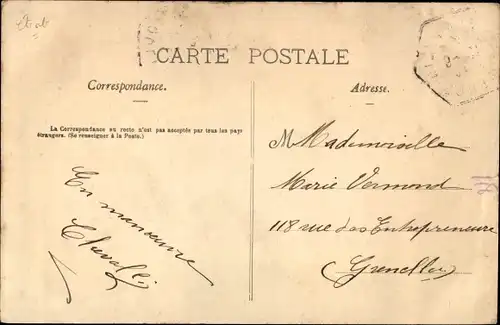 CARTE POSTALE
Correspondance.
Adresse.
La Correspondance au recto n'est pas acceptée par tous les pays
étrangers. (Se renseigner à la Poste.)
En manœuvre
M Mademoiselle
Marie Vermond
118 rue des Entrepreneurs